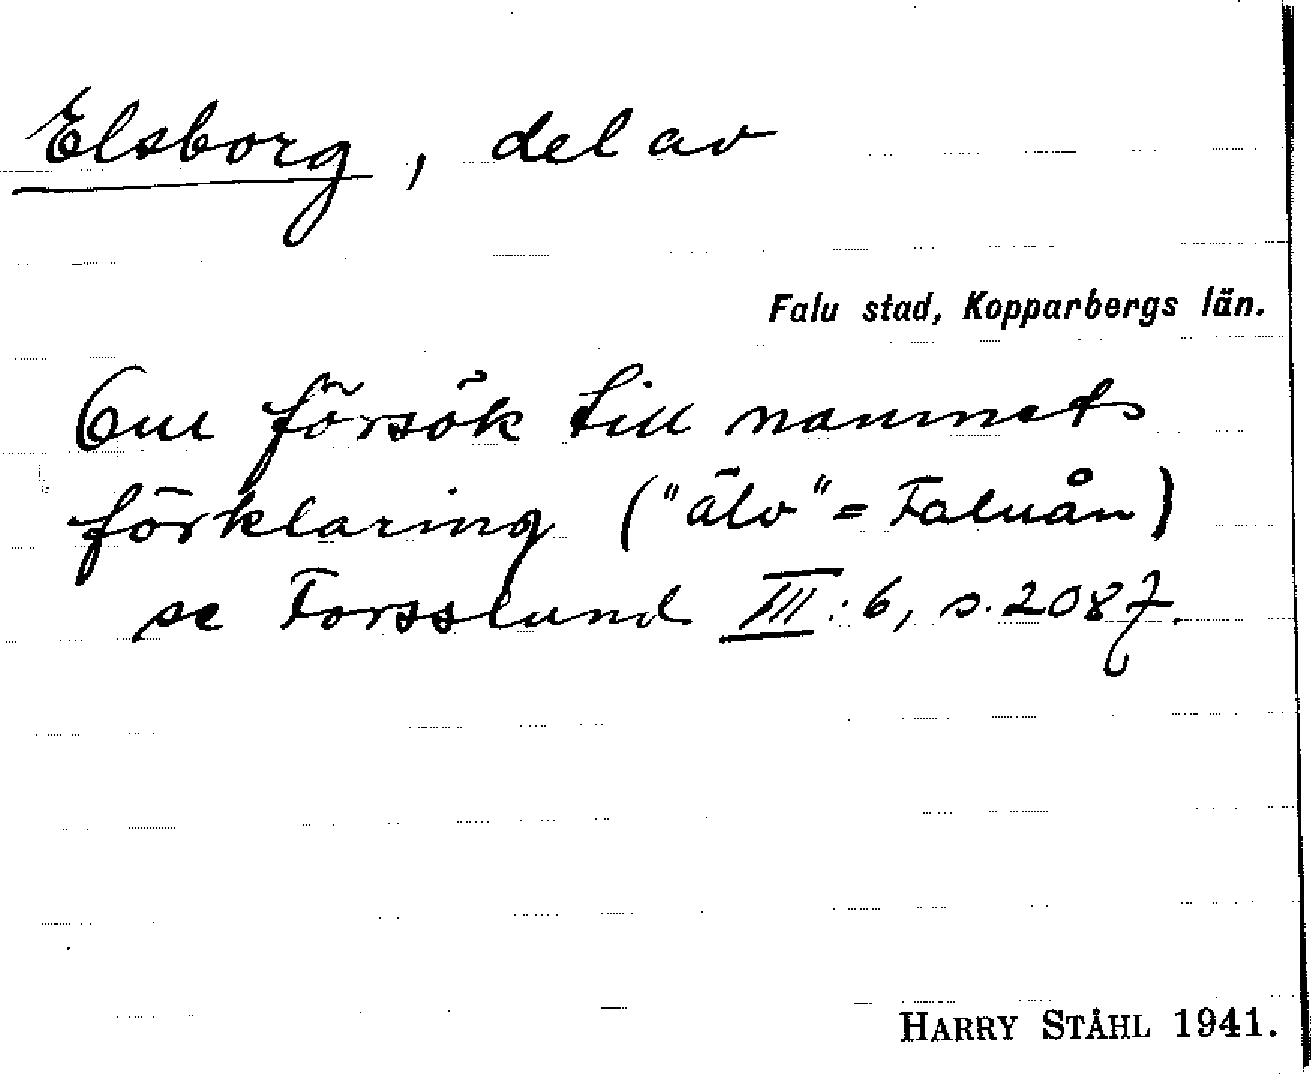 Elsborg, del av
Falu stad, Kopparbergs län.
Om försök till namnets
förklaring ("älv" = Faluån)
se Forsslund III:6, s. 2087.
HARRY STÅHL 1941.